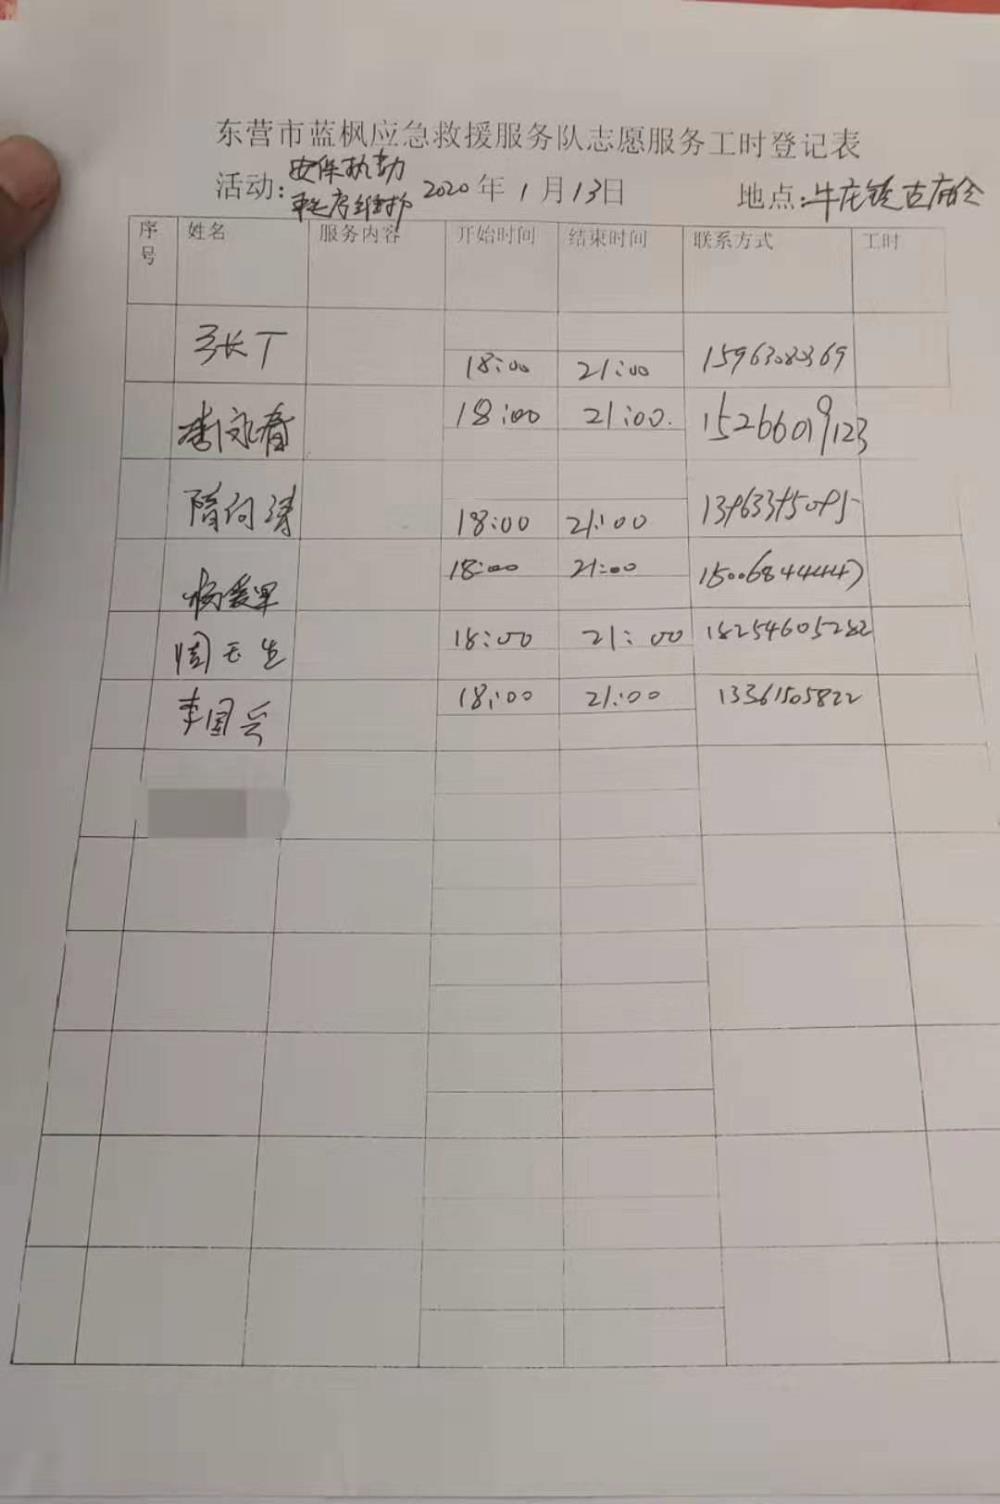 东营市蓝枫应急救援服务队志愿服务工时登记表
活动:安保执勤
秩序维护 2020年1月13日 地点:牛庄镇古庙会
序号 姓名 服务内容 开始时间 结束时间 联系方式 工时
18:00 21:00 15963080369
李永春 18:00 21:00. 15266019123
隋向涛 18:00 21:00
18:00 21:00
周玉生 18:00 21:00 18254605282
李国兵 18:00 21:00 13361505822